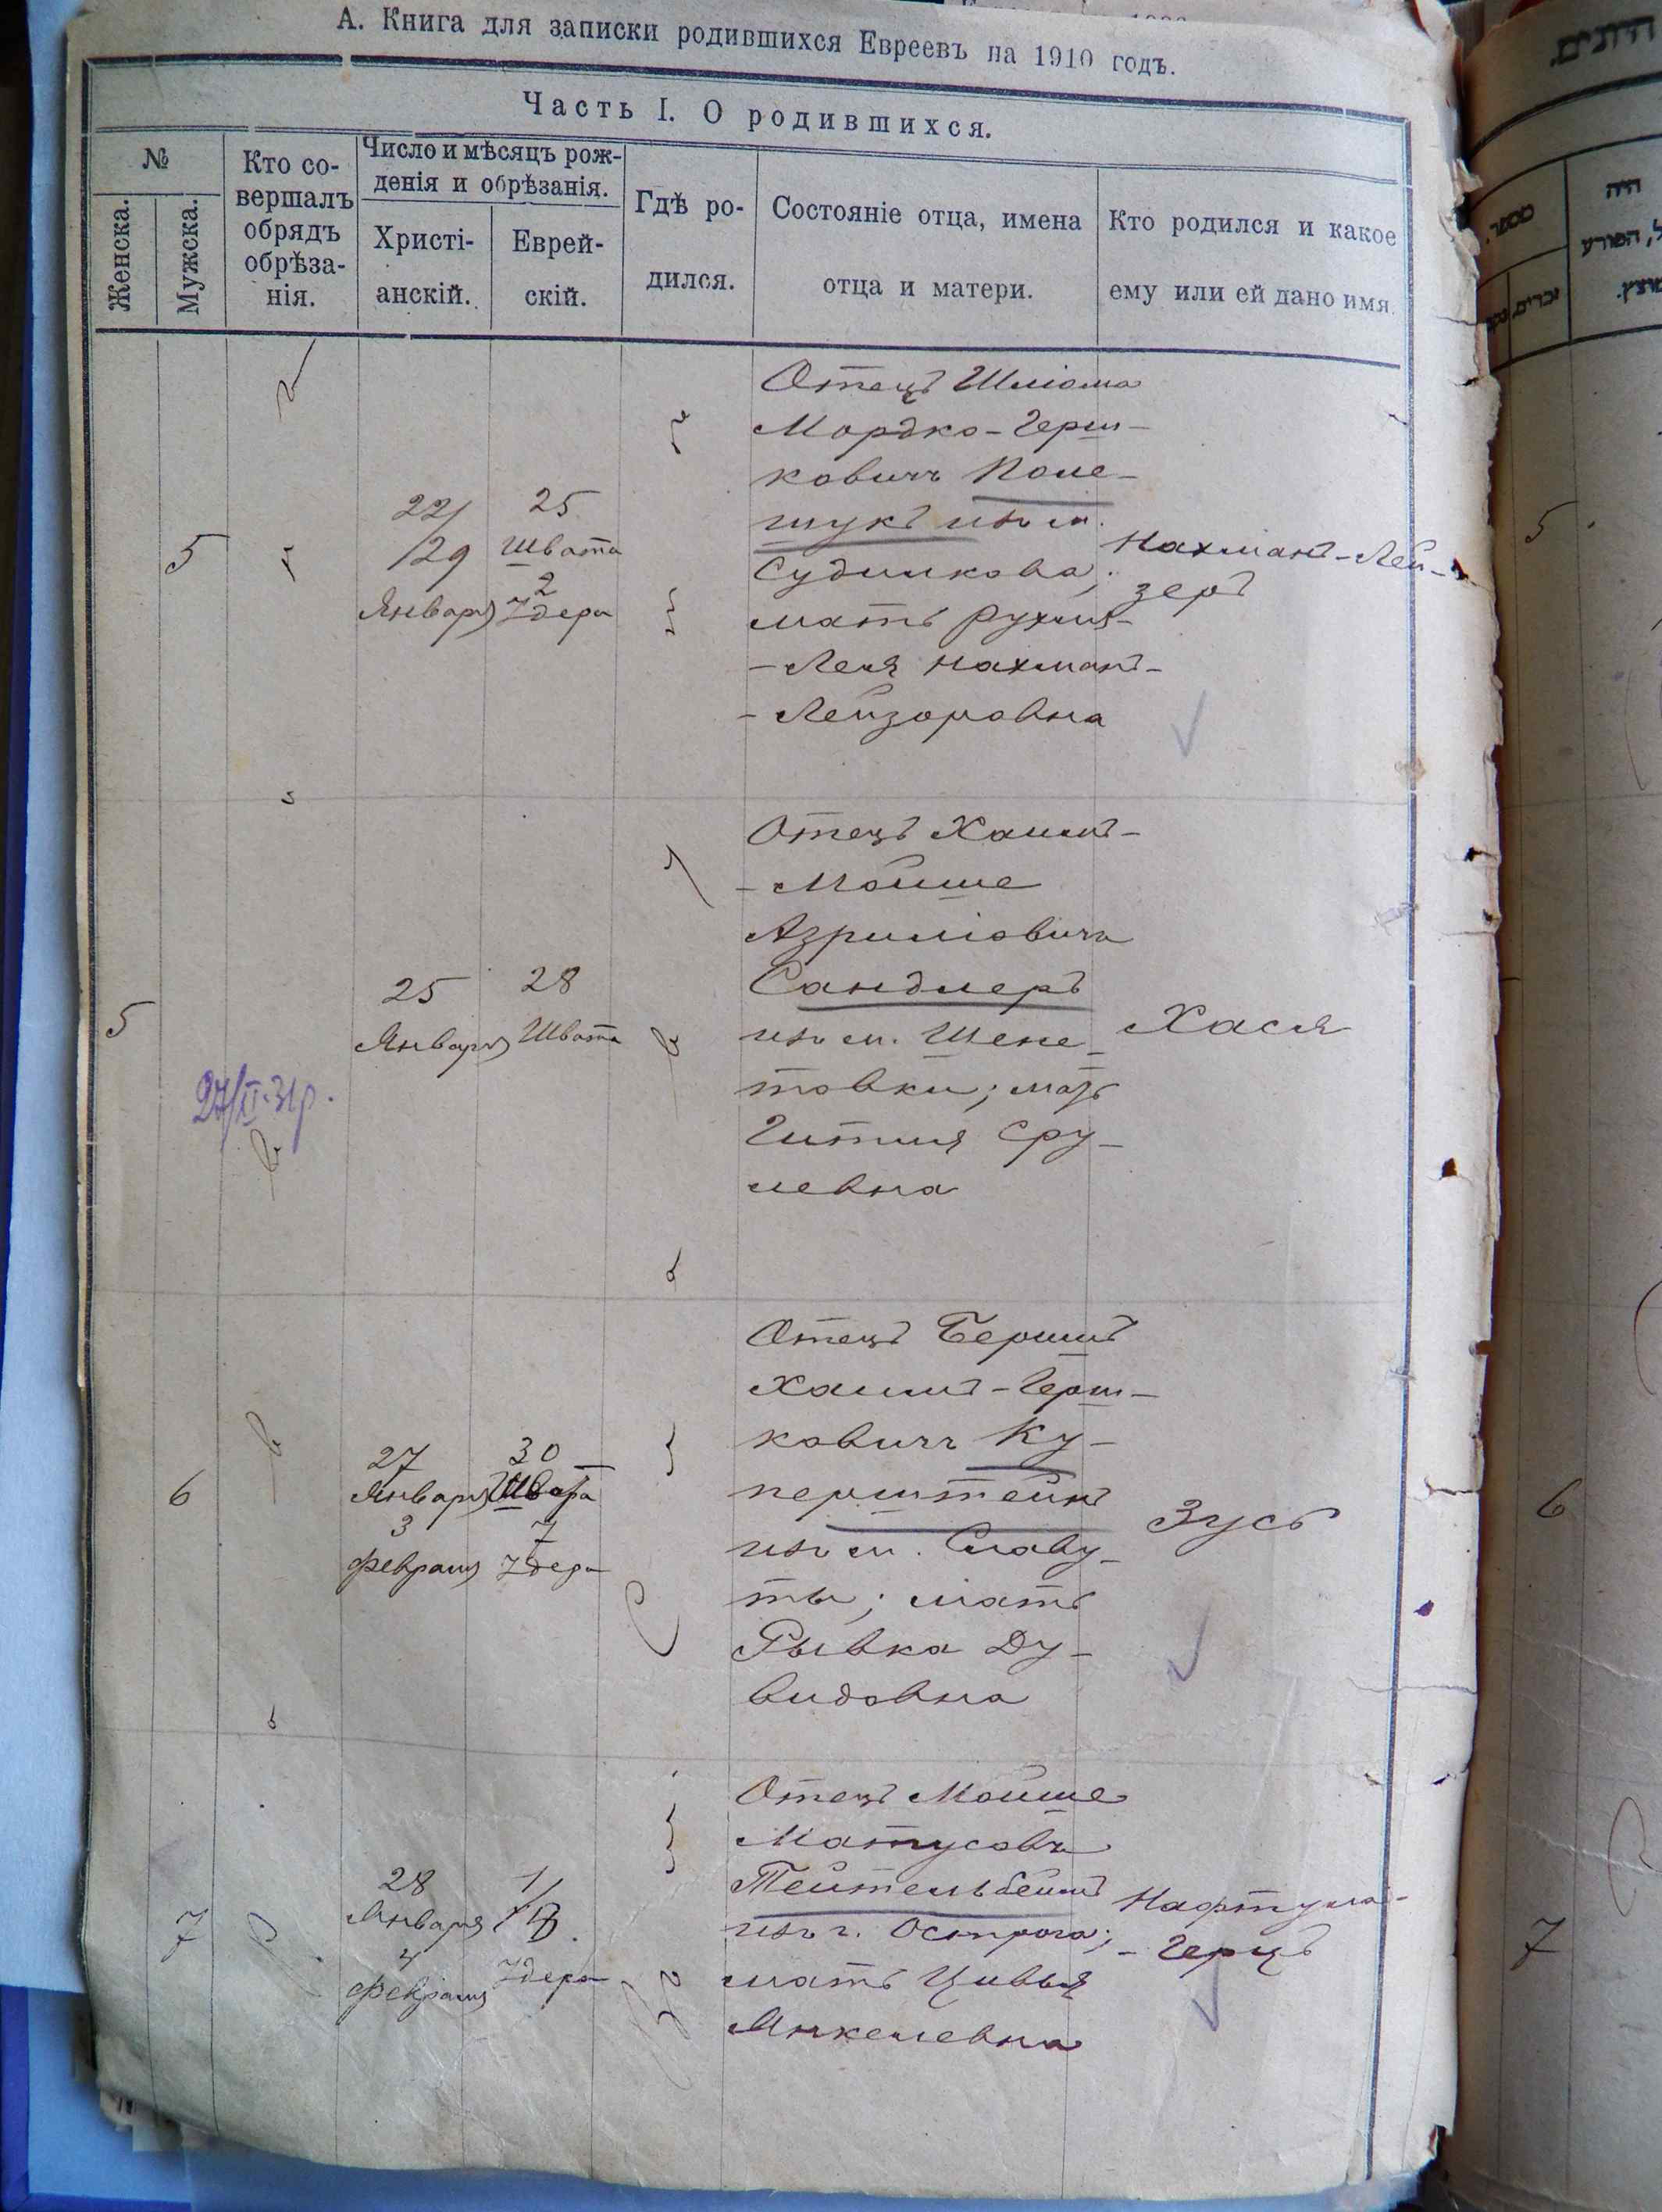 А. Книга для записки родившихся Евреевъ на 1910 годъ.
Часть I. О родившихся.
№
Женска.
Мужска.
Кто со-
вершалъ
обрядъ
обрѣза-
нія.
Число и мѣсяцъ рож-
денія и обрѣзанія.
Христі-
анскій.
Еврей-
скій.
Гдѣ ро-
дился.
Состояніе отца, имена
отца и матери.
Кто родился и какое
ему или ей дано имя.
5
22/
/29
Января
25
Швата
2
Адера
Отецъ Шліома
Мордко-Герш-
ковичъ Поле-
щукъ изъ м.
Судилкова;
мать Рухля-
-Лея Нахманъ-
-Лейзоровна
Нахманъ-Лей-
зеръ
5
25
Января
28
Швата
Отецъ Хаимъ-
-Мойше
Азриліовичъ
Сандлеръ
изъ м. Шепе-
товки; мать
Гитля Сру-
левна
Хася
6
27
Января
3
Февраля
30
Швата
7
Адера
Отецъ Бершъ
Хаимъ-Герш-
ковичъ Ку-
перштейнъ
изъ м. Славу-
ты; мать
Рывка Ду-
видовна
Зусь
7
28
Января
4
Февраля
1/
/8
Адера
Отецъ Мойше
Матусовъ
Тейтельбеймъ
изъ г. Острога;
мать Цивья
Янкелевна
Нафтула-
-Герцъ
היה
מספר.
זכרים
5
6
7